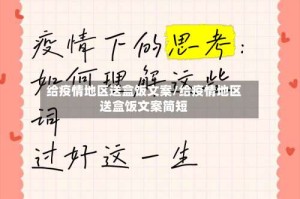 疫情下的思考:
如何理解这些
给疫情地区送盒饭文案/给疫情地区
送盒饭文案简短
词
过好这一生